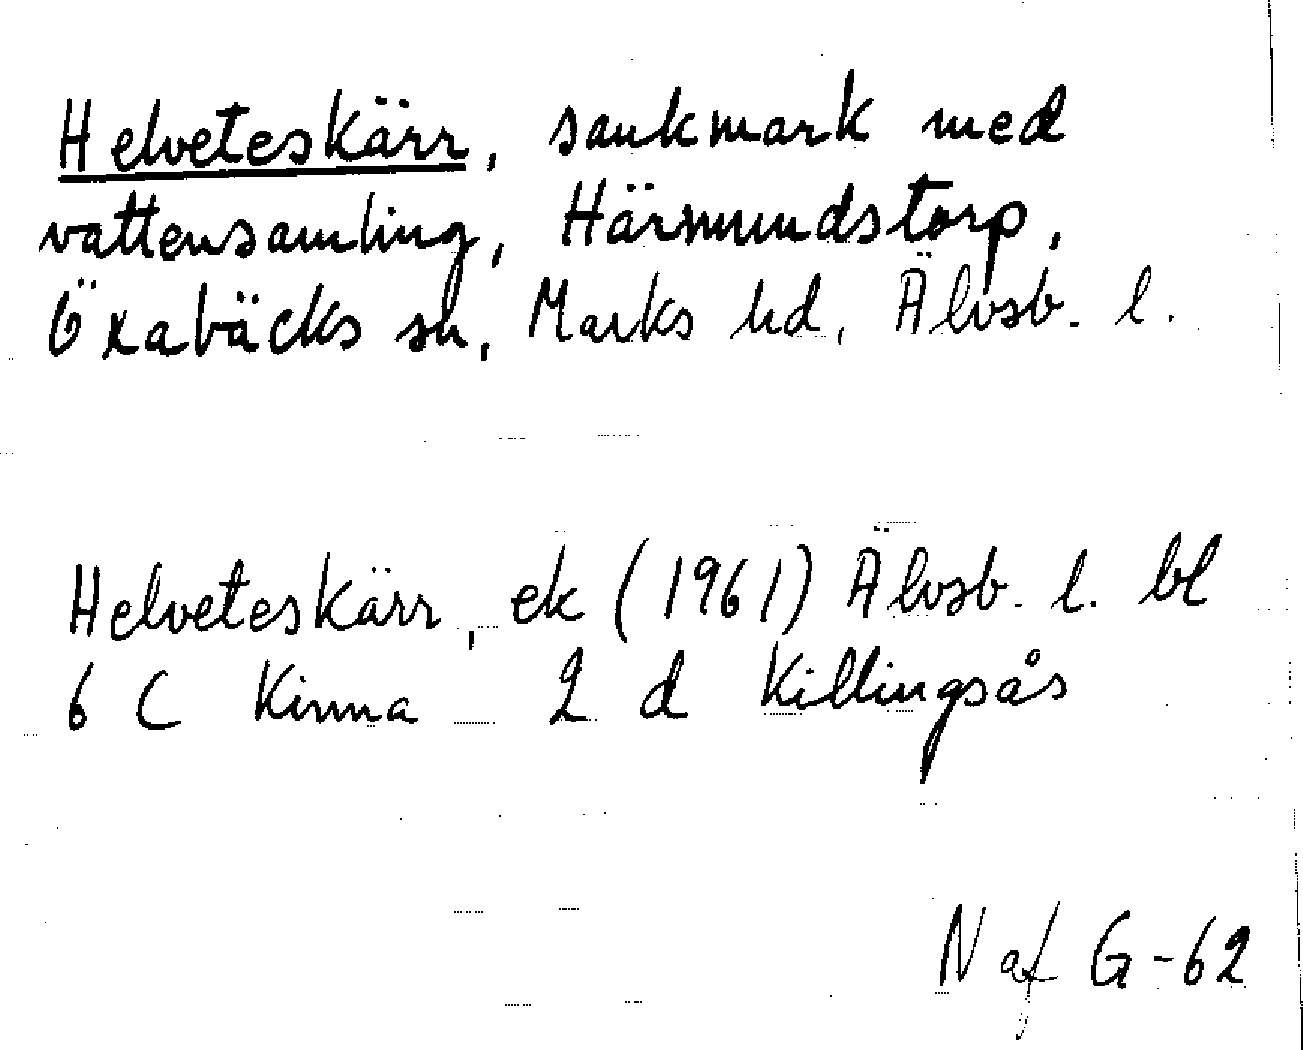 Helveteskärr, sankmark med
vattensamling, Härsmundstorp,
Öxabäcks sn, Marks hd, Älvsb. l.
Helveteskärr, ek (1961) Älvsb. l. bl
6 C Kinna 2 d Killingsås
N af G-62